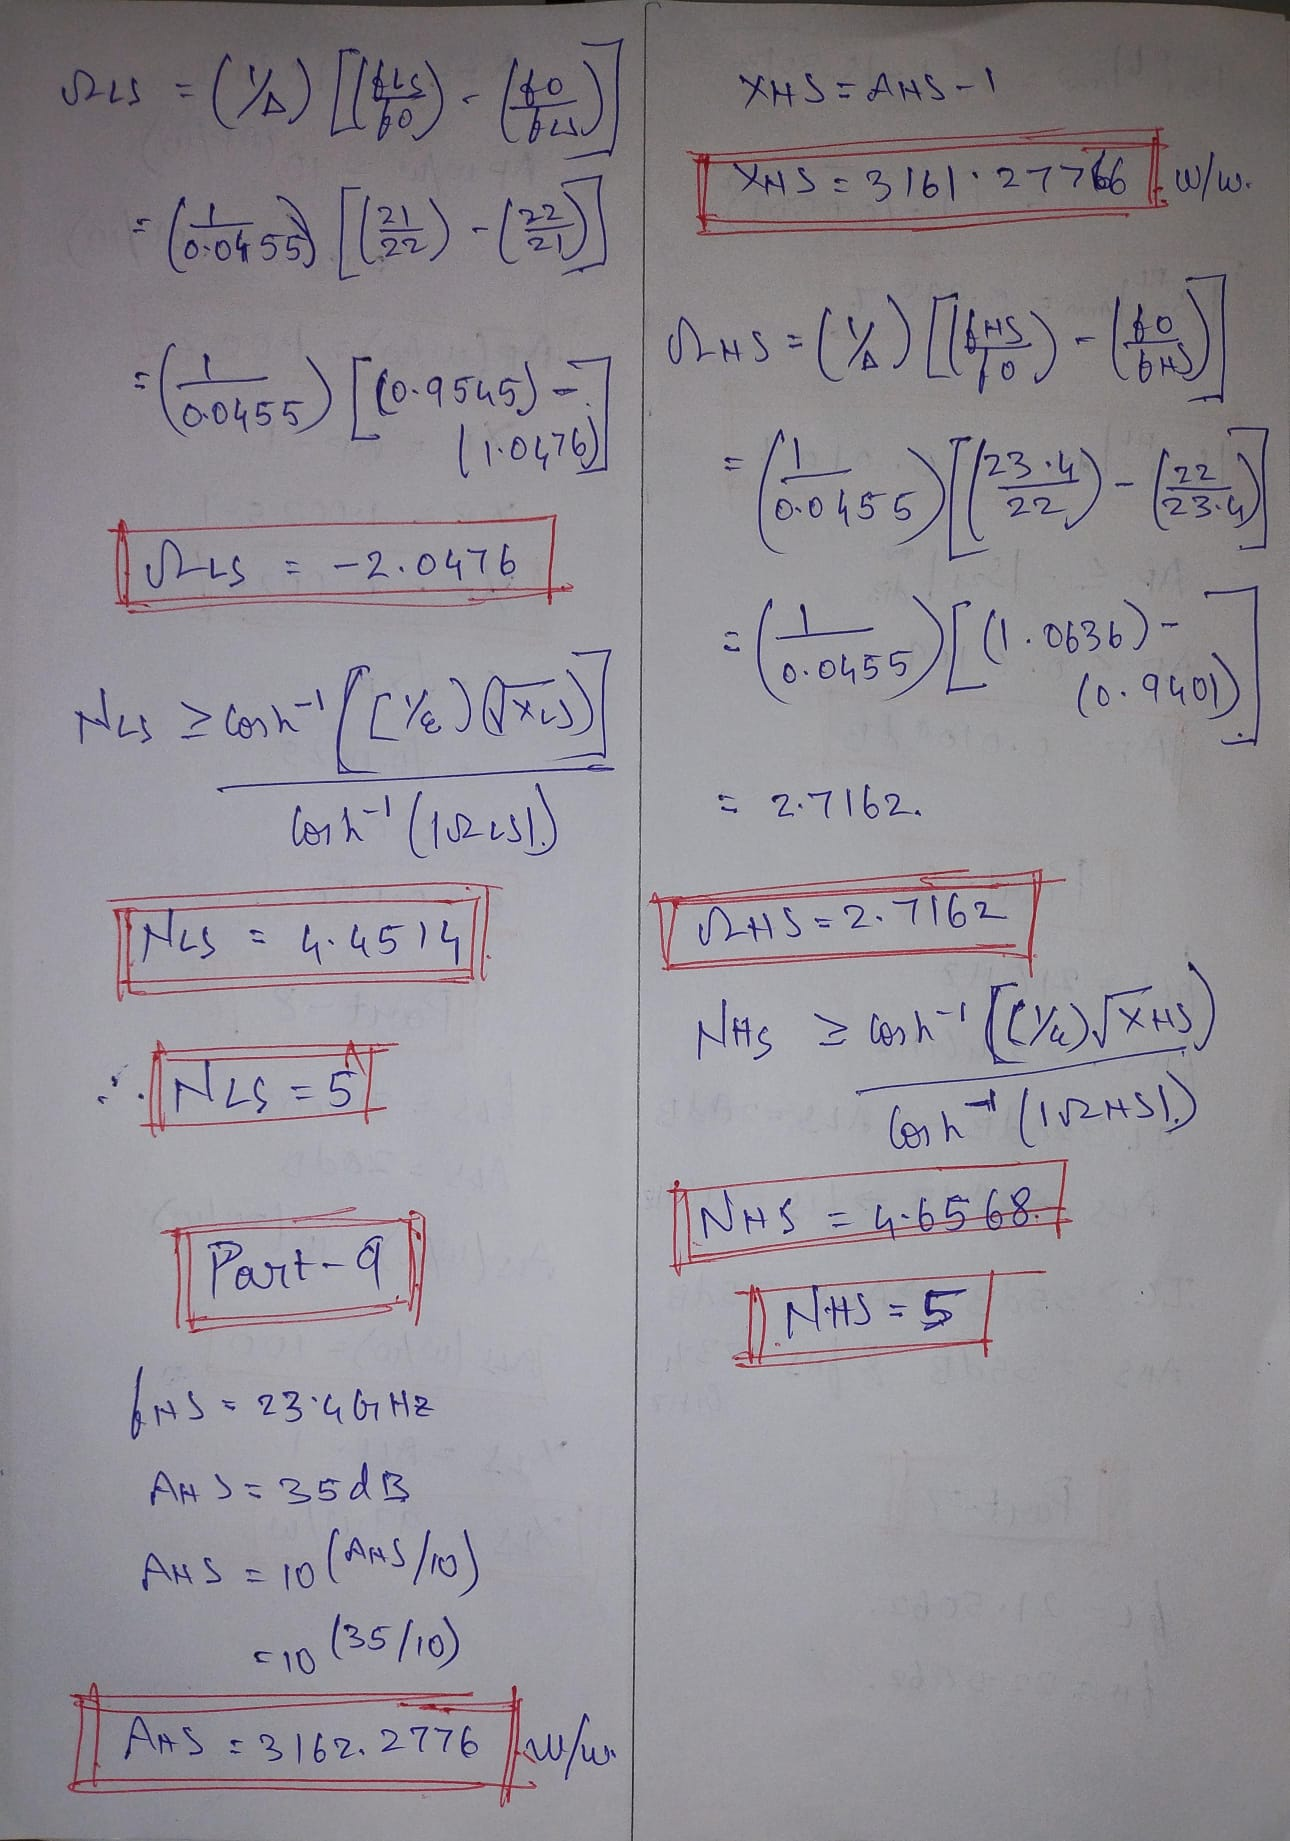 ΩLS = (1/Δ) [(fLS/f0) - (f0/fLS)]
= (1/0.0455) [(21/22) - (22/21)]
= (1/0.0455) [(0.9545) -
(1.0476)]
ΩLS = -2.0476
NLS ≥ cosh⁻¹ [(1/ε)(√XLS)]
cosh⁻¹ (|ΩLS|)
NLS = 4.4514
∴ NLS = 5
Part-9
fHS = 23.4 GHZ
AHS = 35dB
AHS = 10^(AHS/10)
= 10^(35/10)
AHS = 3162.2776 w/w
XHS = AHS - 1
XHS = 3161.27766 w/w.
ΩHS = (1/Δ) [(fHS/f0) - (f0/fHS)]
= (1/0.0455) [(23.4/22) - (22/23.4)]
= (1/0.0455) [(1.0636) -
(0.9401)]
= 2.7162.
ΩHS = 2.7162
NHS ≥ cosh⁻¹ [(1/ε)√XHS)
cosh⁻¹ (|ΩHS|)
NHS = 4.6568.
NHS = 5